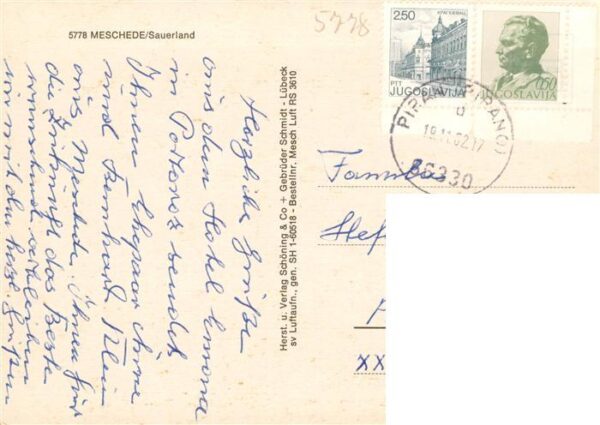 5778 MESCHEDE/Sauerland
5778
2.50
PTT
JUGOSLAVIJA
0.60
JUGOSLAVIJA
PIRAN (PIRANO)
19.11.82.17
66330
Herzliche Grüße
aus dem Hotel
in Portoroz sendet
Ihnen Ehepaar
und
aus Meschede. Ihnen für
die Zukunft das Beste
wünschend
wir mit den herzl. Grüßen
Herst. u. Verlag Schöning & Co + Gebrüder Schmidt - Lübeck
sv Luftaufn., gen. SH 1-60518 - Bestellnr. Mesch Luft RS 3610
Familie
Hef
XX